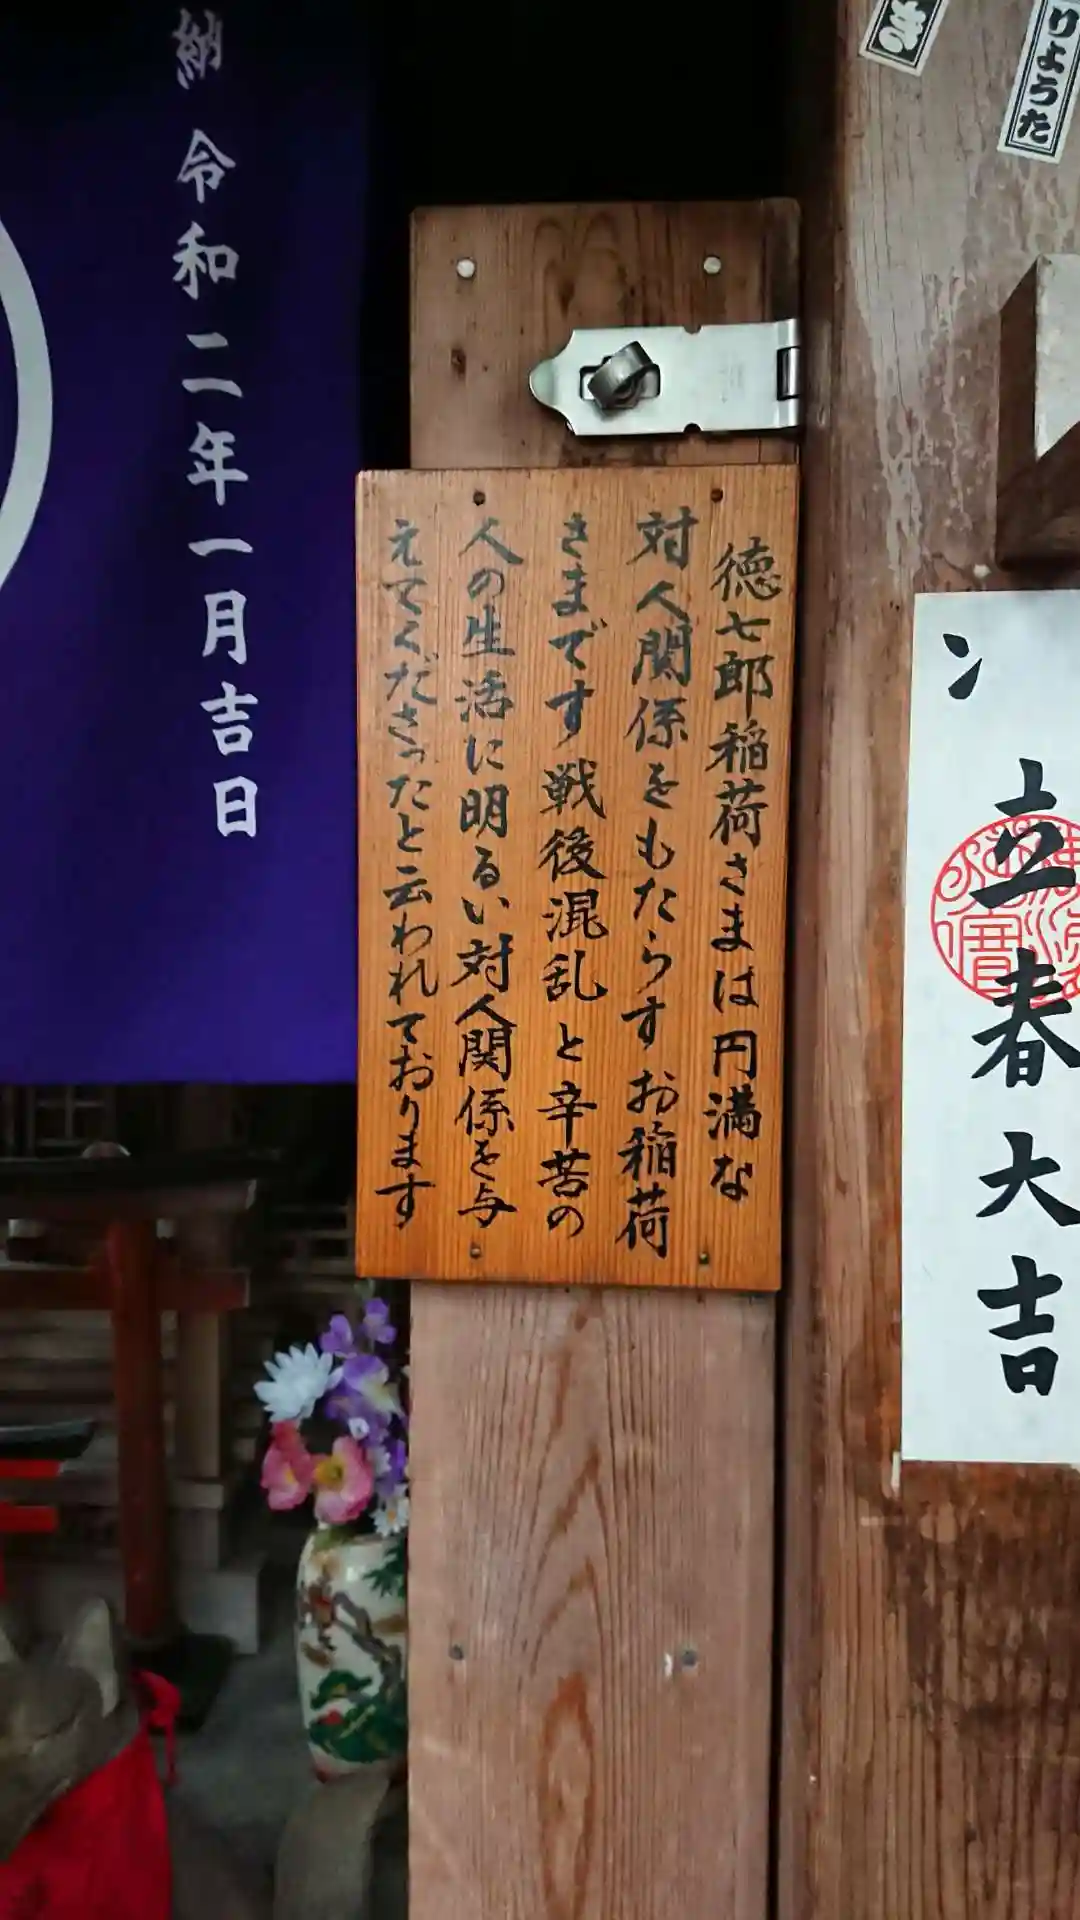 き
りょうた
立春大吉
徳七郎稲荷さまは円満な
対人関係をもたらすお稲荷
さまです戦後混乱と辛苦の
人の生活に明るい対人関係を与
えてくださったと云われております
納 令和二年一月吉日